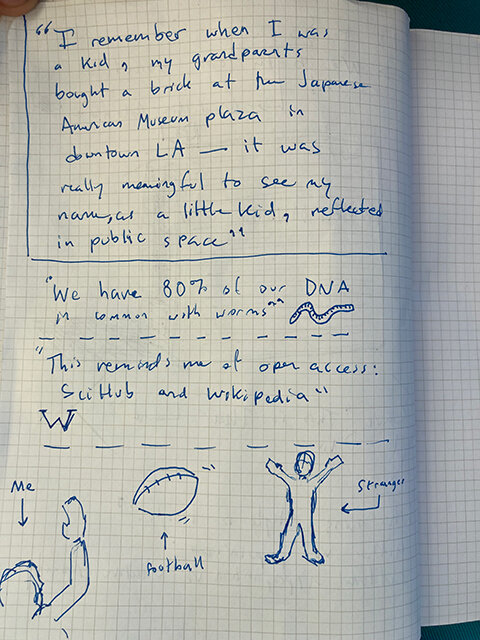 "I remember when I was
a kid, my grandparents
bought a brick at the Japanese
American Museum plaza in
downtown LA — it was
really meaningful to see my
name, as a little kid, reflected
in public space"
"We have 80% of our DNA
in common with worms"
"This reminds me of open access:
SciHub and Wikipedia"
W
Me
Stranger
football